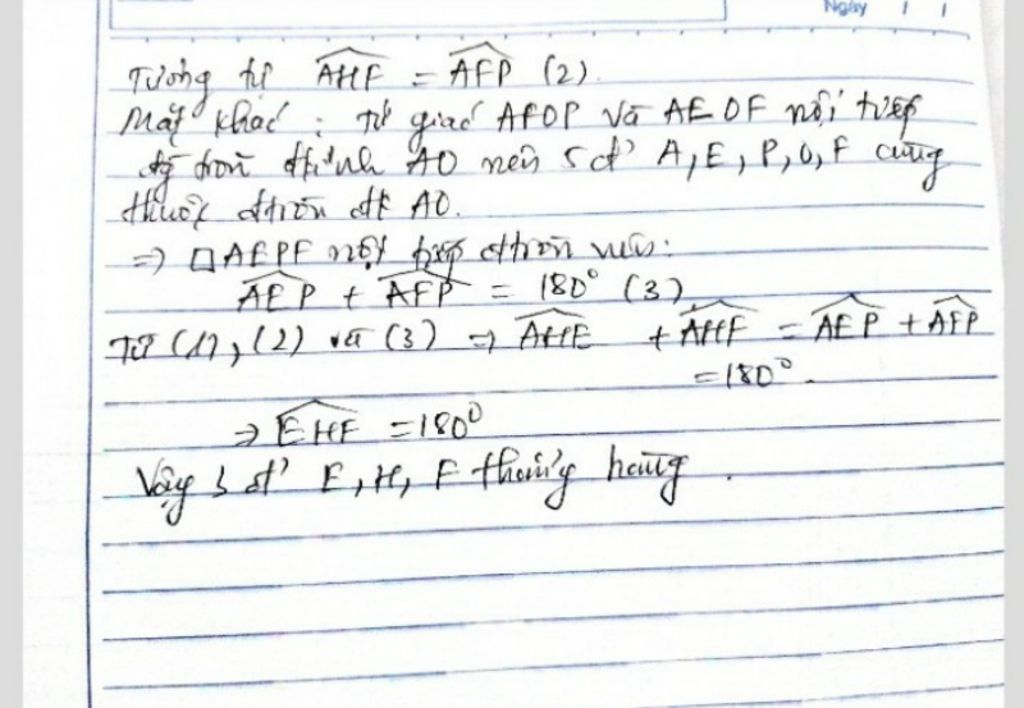 Ngày / /
Tương tự AHF = AFP (2).
Mặt khác : Tứ giác AFOP và AEOF nội tiếp
đg tròn đkính AO nên 5 đ' A, E, P, O, F cùng
thuộc đtròn đk AO.
=> □AEPF nội tiếp đtròn nên:
AEP + AFP = 180° (3)
Từ (1), (2) và (3) => AHE + AHF = AEP + AFP
= 180°.
=> EHF = 180°
Vậy 3 đ' E, H, F thẳng hàng.